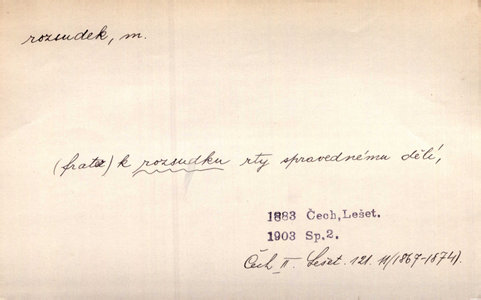 rozsudek, m.
(frate) k rozsudku rty spravednému dělí,
1883 Čech, Lešet.
1903 Sp.2.
Čech II. Lešet. 121. 11/(1867-1874).